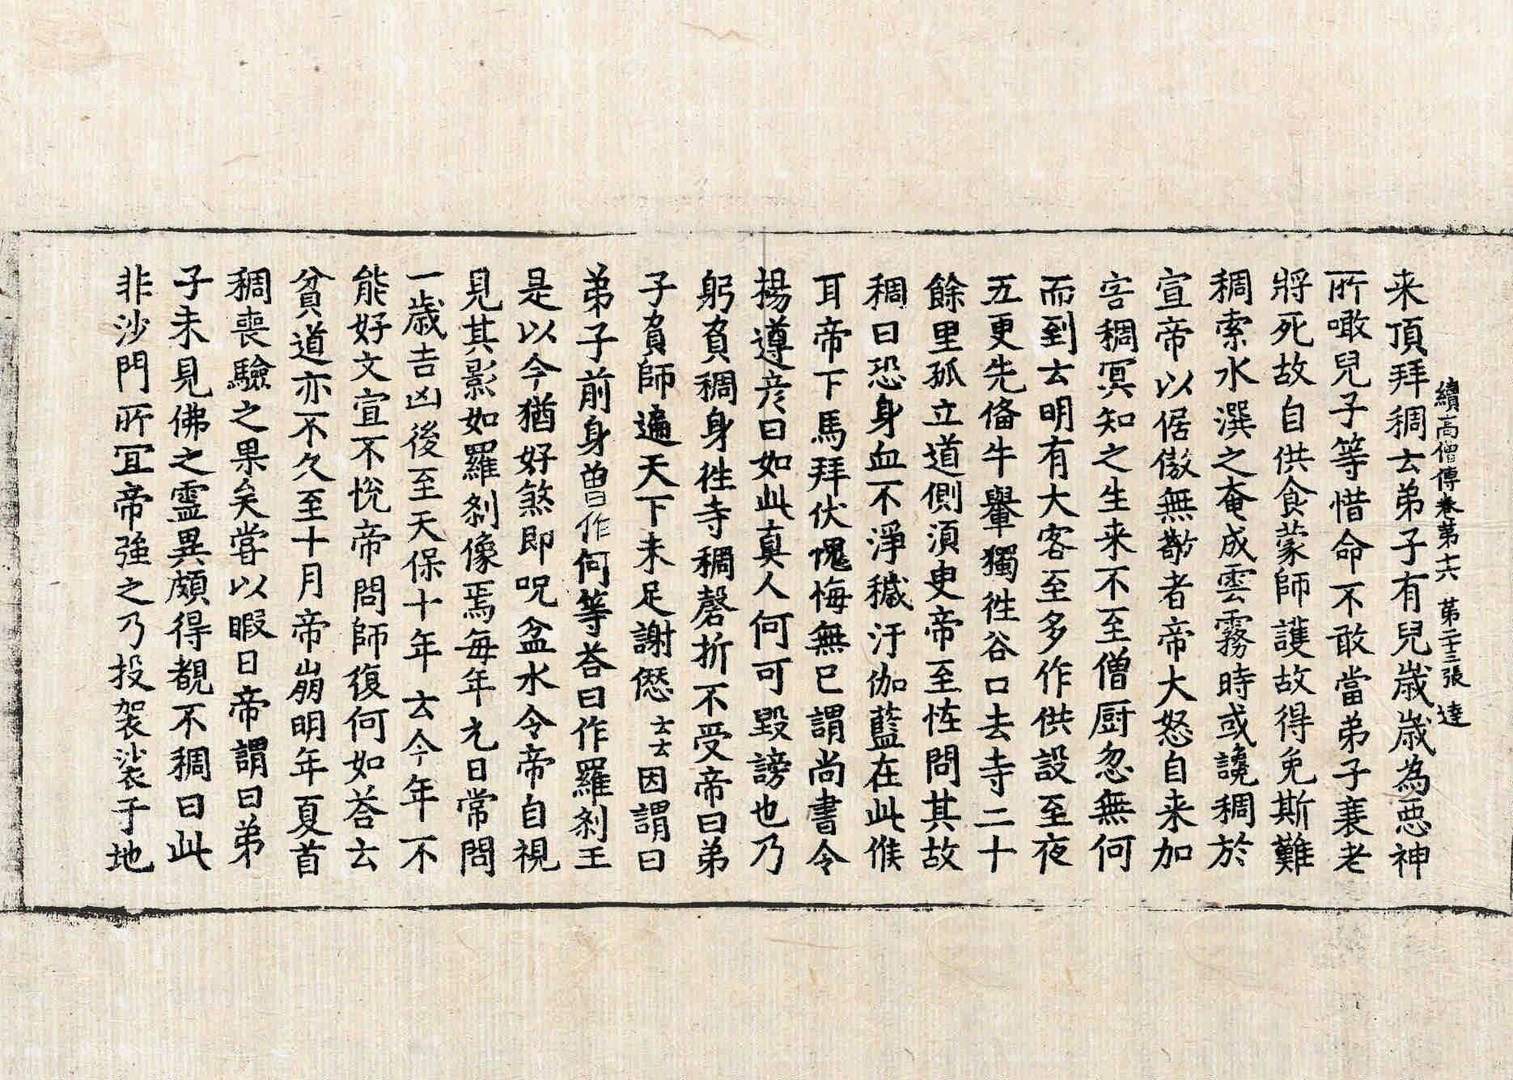 續高僧傳卷第十六 第二十三張 達
来頂拜稠云弟子有兒歲歲為惡神
所噉兒子等惜命不敢當弟子衰老
將死故自供食蒙師護故得免斯難
稠索水潠之奄成雲霧時或讒稠於
宣帝以倨傲無敬者帝大怒自来加
害稠冥知之生来不至僧厨忽無何
而到云明有大客至多作供設至夜
五更先備牛轝獨往谷口去寺二十
餘里孤立道側須臾帝至恠問其故
稠曰恐身血不淨穢汙伽藍在此候
耳帝下馬拜伏愧悔無已謂尚書令
楊遵彦曰如此真人何可毀謗也乃
躬負稠身往寺稠磬折不受帝曰弟
子負師遍天下未足謝愆 云云因謂曰
弟子前身曾作何等荅曰作羅刹王
是以今猶好煞即呪盆水令帝自視
見其影如羅刹像焉每年元日常問
一歲吉凶後至天保十年 云今年不
能好文宣不悅帝問師復何如荅云
貧道亦不久至十月帝崩明年夏首
稠喪驗之果矣嘗以暇日帝謂曰弟
子未見佛之靈異頗得覩不稠曰此
非沙門所冝帝強之乃投袈裟于地